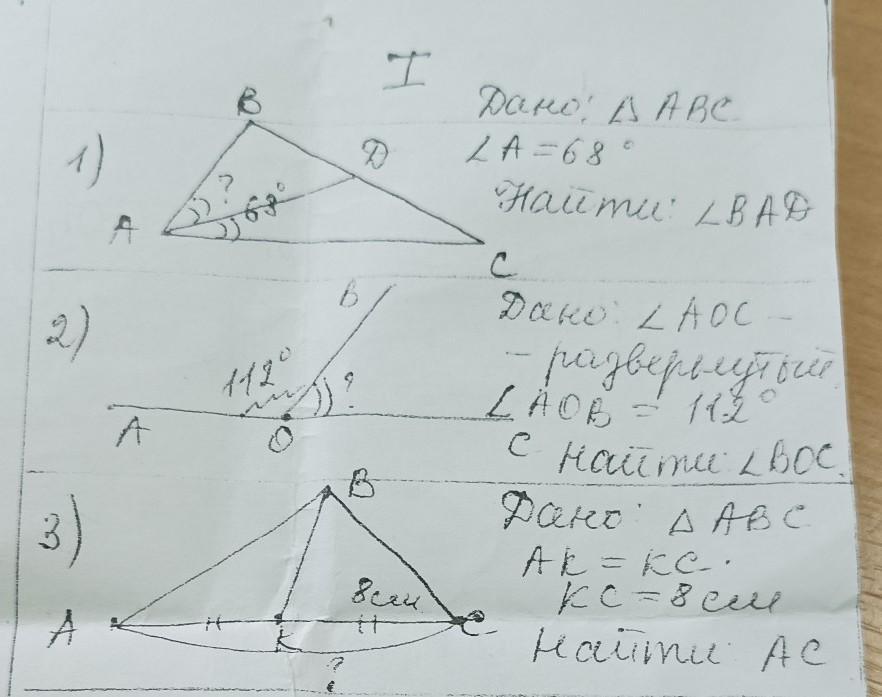 I
1)
B
D
A
?
68°
C
Дано: Δ ABC
∠A = 68°
Найти: ∠BAD
2)
B
112°
?
A
O
C
Дано: ∠AOC -
- развернутый
∠AOB = 112°
Найти: ∠BOC.
3)
B
8см
A
K
C
?
Дано: Δ ABC
AK = KC.
KC = 8 см
Найти: AC